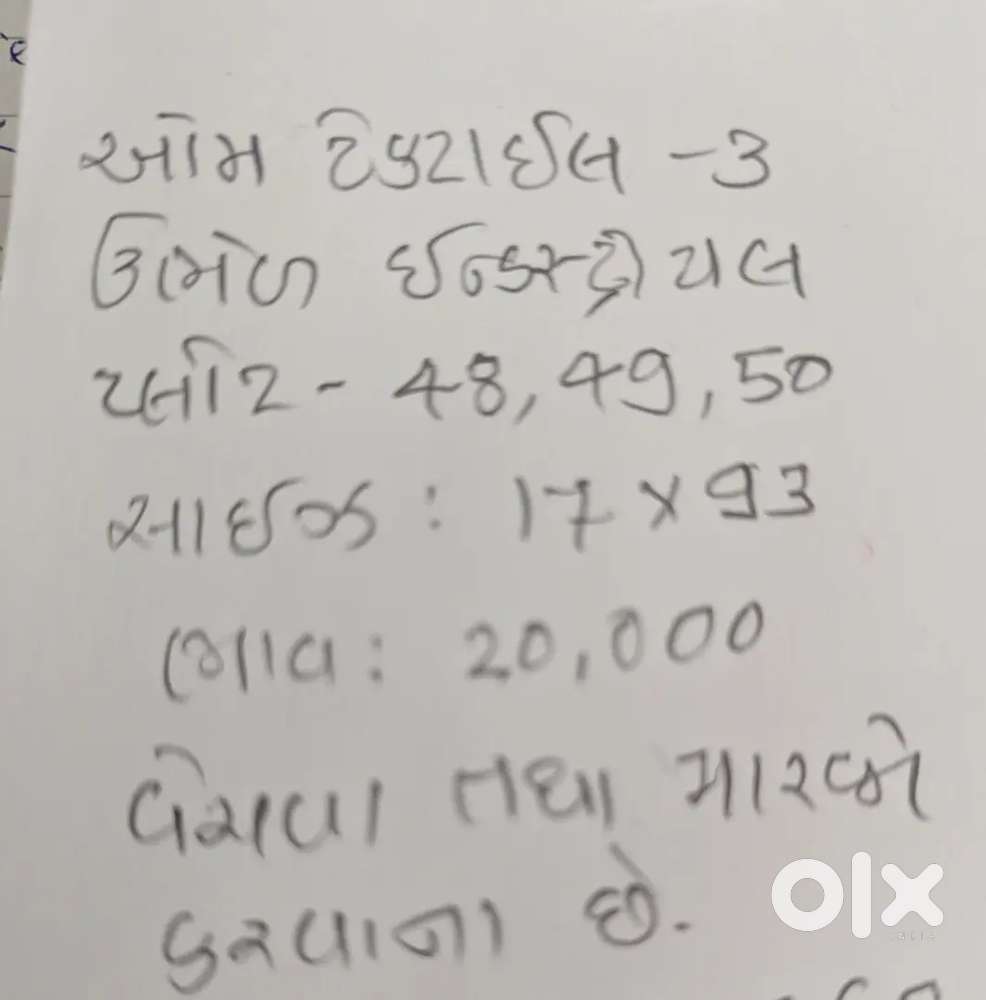 ઓમ ટેક્ટાઈલ -3
ઉમભેળ ઈન્ડસ્ટ્રીયલ
પ્લોટ - 48, 49, 50
સાઈઝ : 17 x 93
ભાવ : 20,000
વેચવા તથા મારકો
કરવાના છે.
olx
INDIA